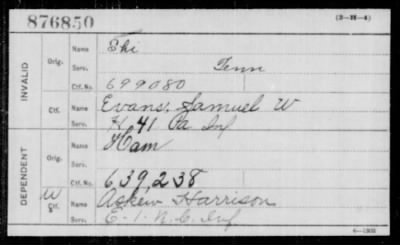 876850
(3-H-4)
INVALID
Orig.
Name Eki
Serv. Tenn
Ctf. No. 699080
Ctf.
Name Evans, Samuel W
Serv. K, 41 Pa Inf
DEPENDENT
Orig.
Name Ham
Serv.
Ctf. No. 639,238
W
Ctf.
Name Askew Harrison
Serv. E-1 N.C. Inf